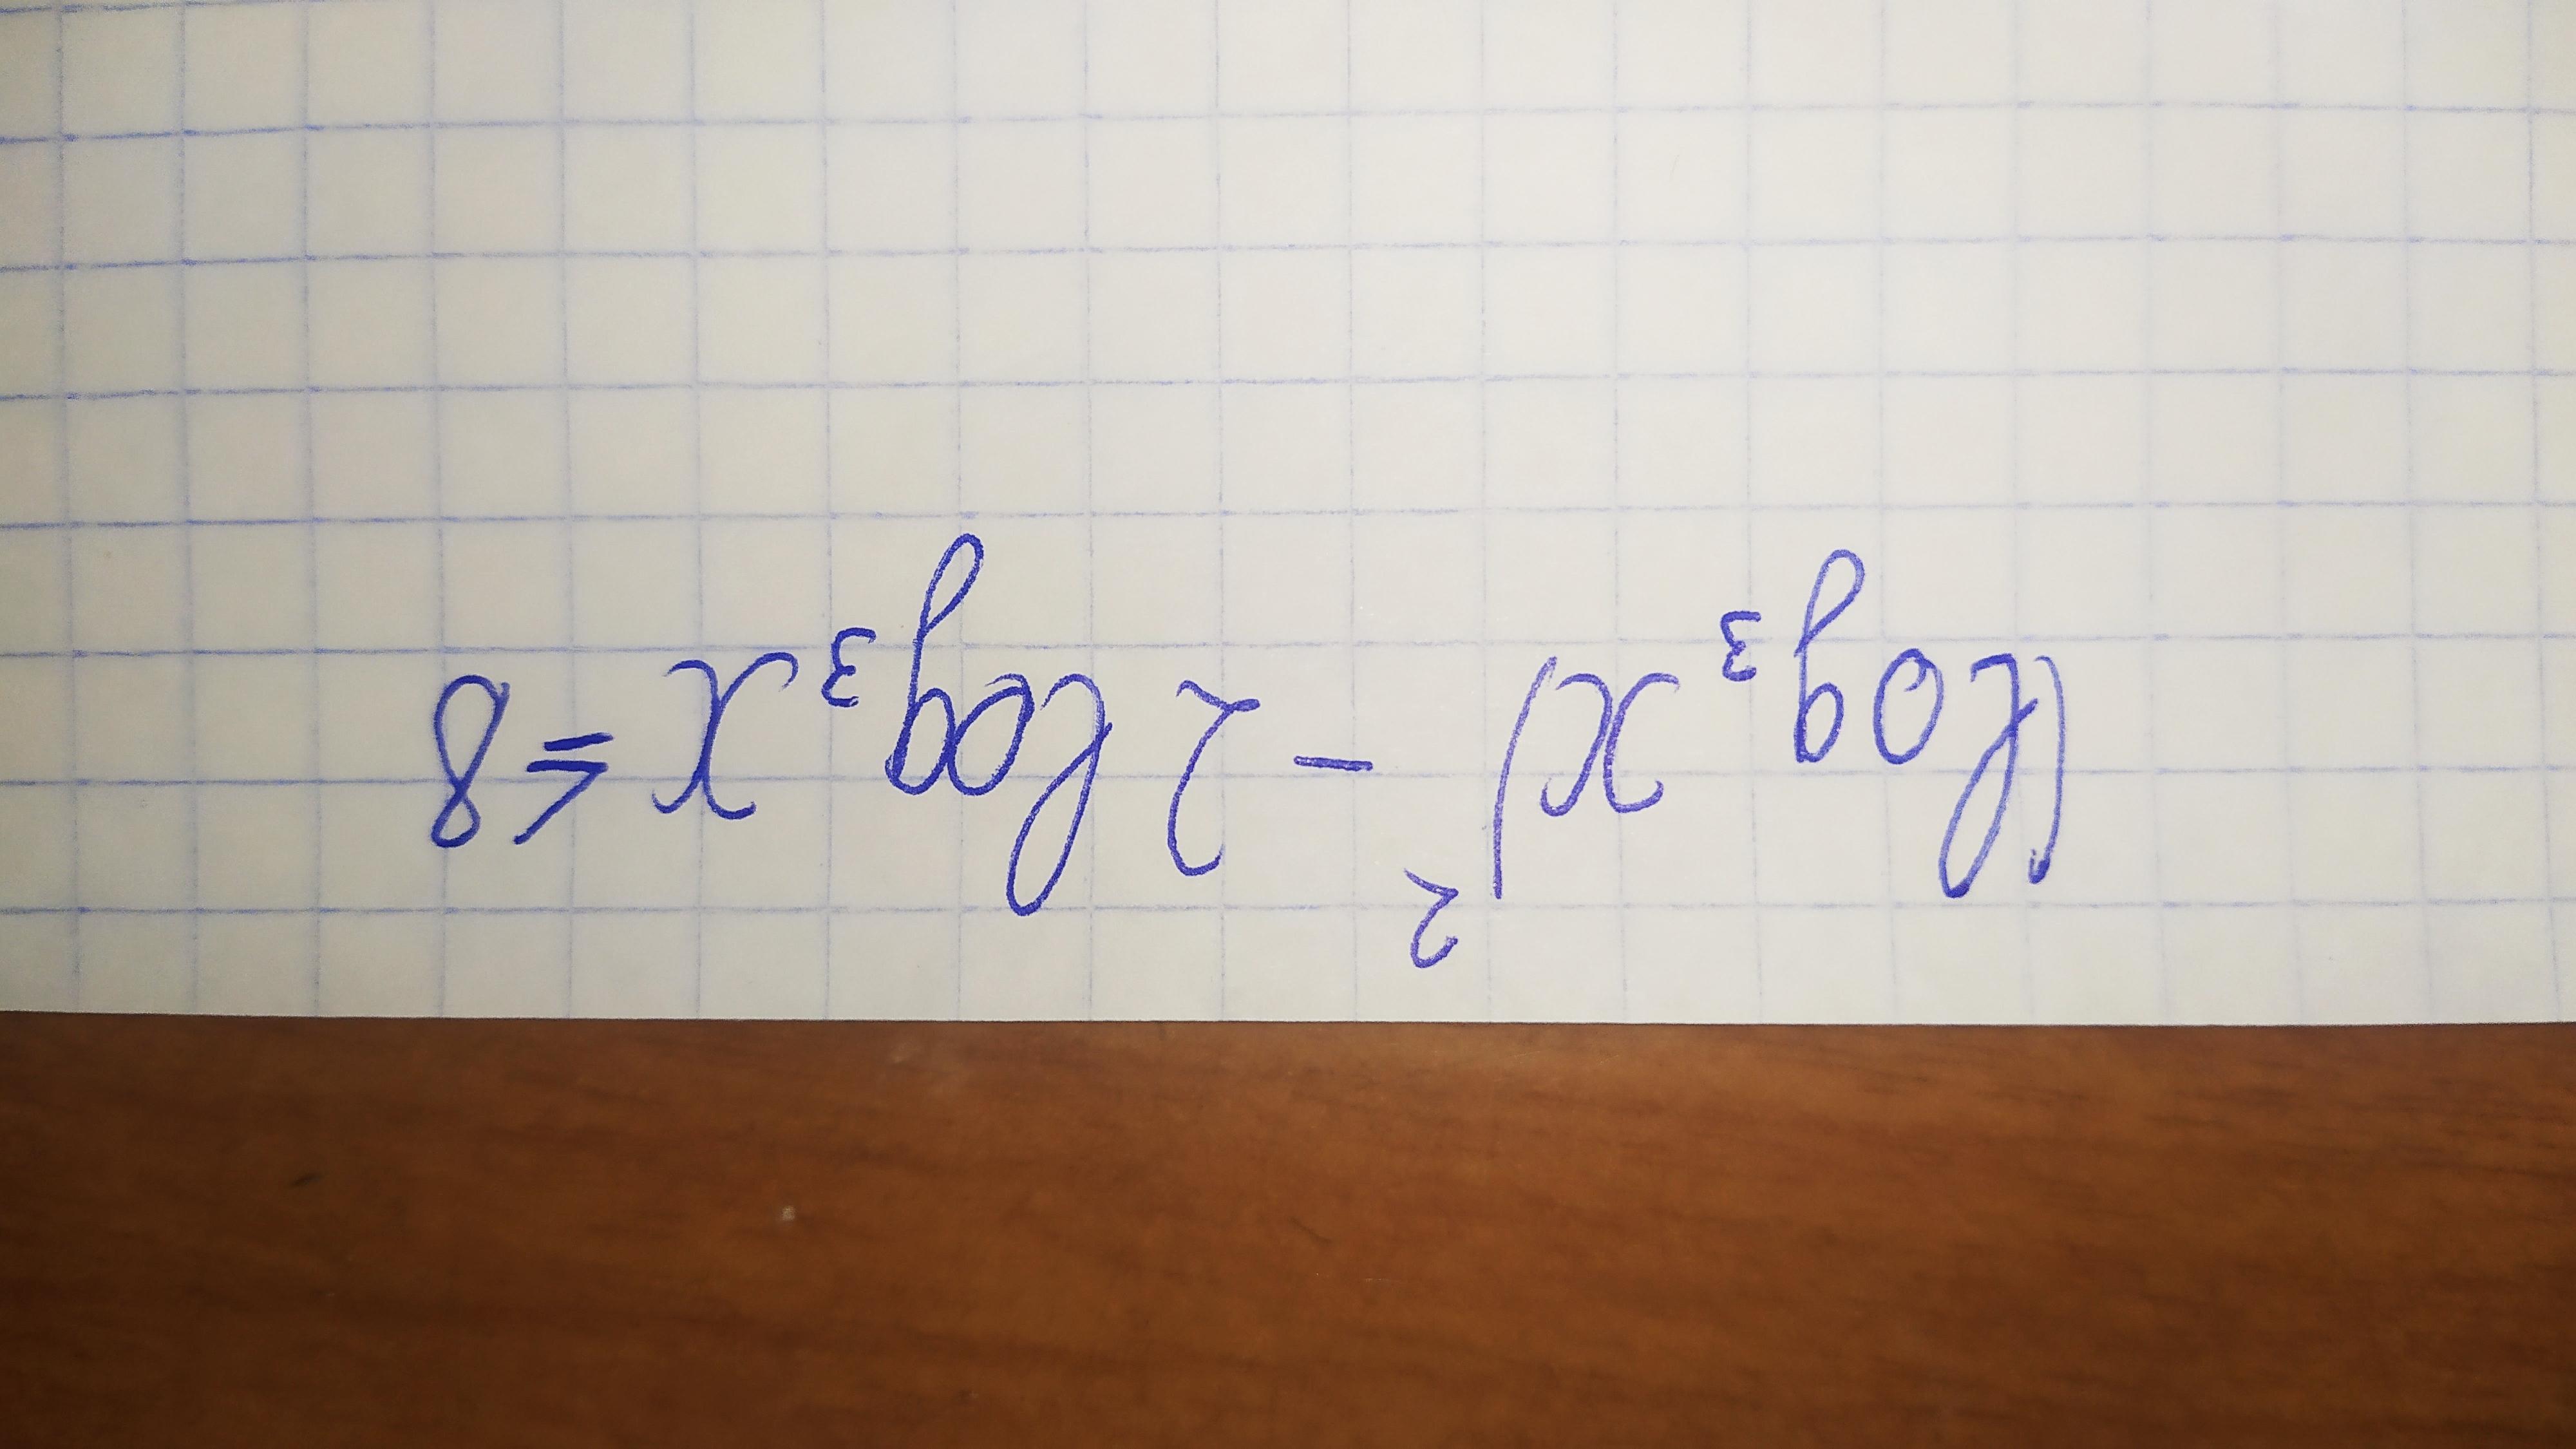 (log₃x)² - 2 log₃x ≤ 8